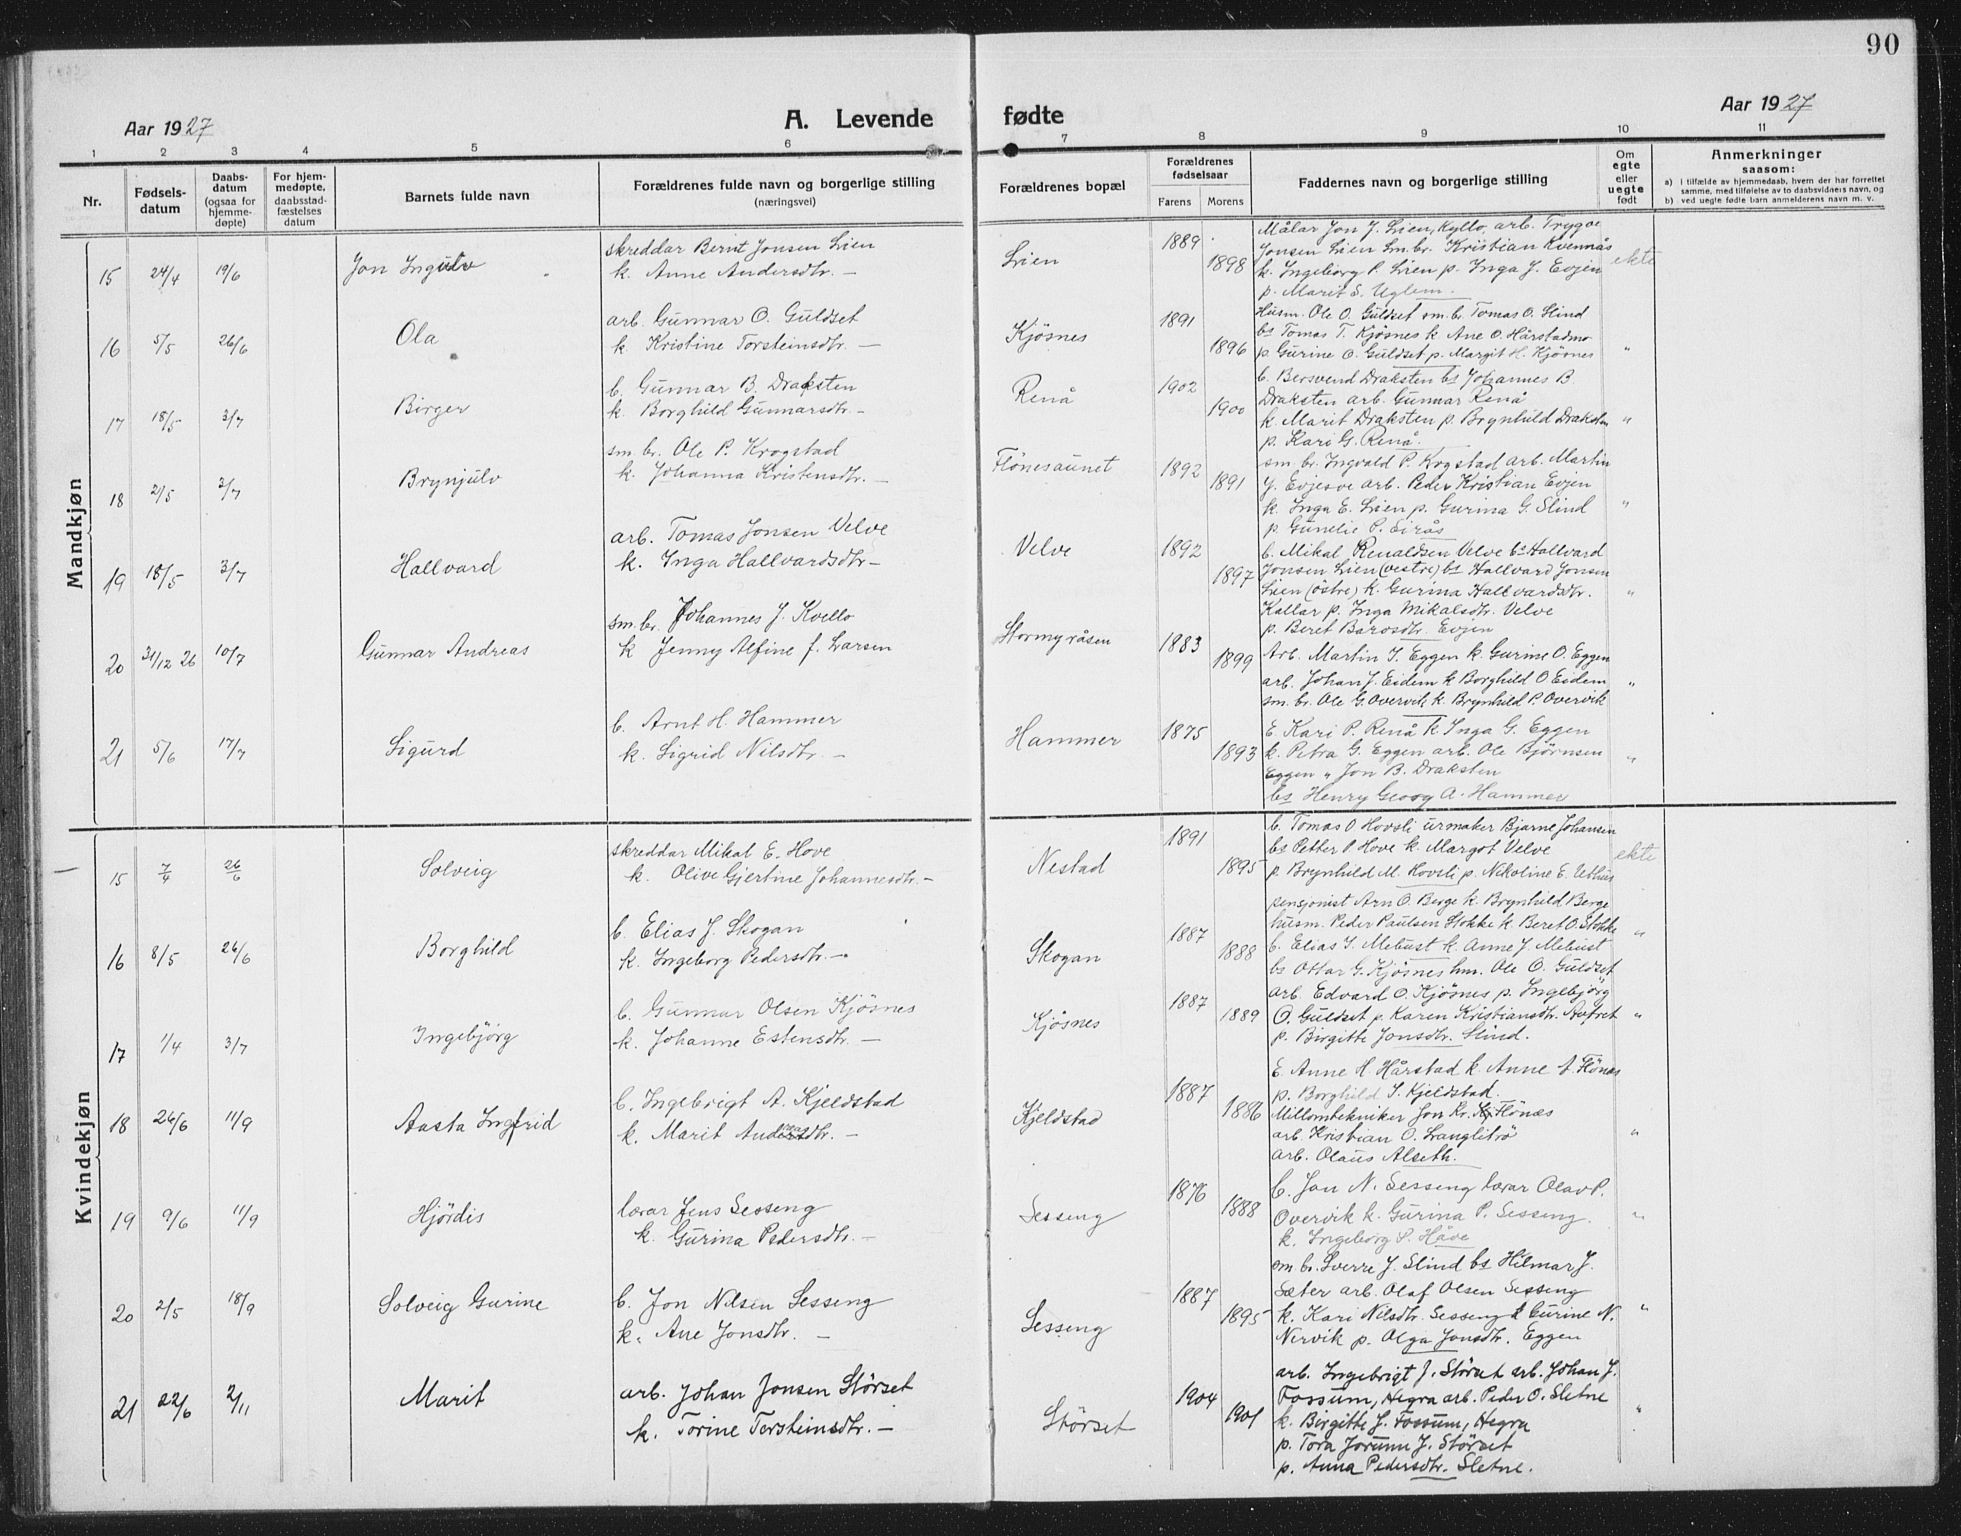 90
Aar 1927
A. Levende
fødte
Aar 1927
1 2 3 4 5 6 7 8 9 10 11
Nr.
Fødsels-
datum
Daabs-
datum
(ogsaa for
hjemme-
døpte)
For hjem-
medøpte,
daabsstad-
fæstelses
datum
Barnets fulde navn
Forældrenes fulde navn og borgerlige stilling
(næringsvei)
Forældrenes bopæl
Forældrenes
fødselsaar
Farens Morens
Faddernes navn og borgerlige stilling
Om
egte
eller
uegte
født
Anmerkninger
saasom:
a) i tilfælde av hjemmedaab, hvem der har forrettet
samme, med tilføielse av to daabsvidners navn, og
b) ved uegte fødte barn anmelderens navn m. v.
Mandkjøn
15 24/4 19/6 Jon Ingulv
skreddar Bernt Jonsen Lien
k. Anne Andersdtr. —
Lien 1889 1898
Målar Jon J. Lien, Kyllo, arb. Trygve
Jonsen Lien sm.br. Kristian Kvennås
k. Ingeborg P. Lien p. Inga J. Evjen
p. Marit S. Uglem.
ekte
16 5/5 26/6 Ola
arb. Gunnar O. Guldset
k. Kristine Torsteinsdtr. —
Kjösnes 1891 1896
Husm. Ole O. Guldset sm.br. Tomas O. Slind
bs Tomas T. Kjösnes k. Ane O. Hårstadmo
p. Gurine O. Guldset p. Margit H. Kjösnes
"
17 18/5 3/7 Birger
b. Gunnar B. Draksten
k. Borghild Gunnarsdtr. —
Renå 1902 1900
b. Bersvend Draksten bs Johannes B.
Draksten arb. Gunnar Renå
k. Marit Draksten p. Brynhild Draksten
p. Kari G. Renå.
"
18 2/5 3/7 Brynjulv
sm.br. Ole P. Krogstad
k. Johanna Kristensdtr. —
Flönesaunet 1892 1891
sm.br. Ingvald P. Kogstad arb. Martin
J. Evjesve arb. Peder Kristian Evjen
k. Inga E. Lien p. Gurina G. Slind
p. Gunelie P. Eirås
"
19 18/5 3/7 Hallvard
arb. Tomas Jonsen Velve
k. Inga Hallvardsdtr —
Velve 1892 1897
b. Mikal Renaldsen Velve bs Hallvard
Jonsen Lien (vestre) bs Hallvard Jonsen
Lien (östre) k. Gurina Hallvardsdtr.
Kallar p. Inga Mikalsdtr. Velve
p. Beret Barosdtr. Evjen
"
20 31/12 26 10/7 Gunnar Andreas
sm.br. Johannes J. Kvello
k Jenny Alfine f. Larsen
Stormyråsen 1883 1899
Arb. Martin I. Eggen k. Gurine O. Eggen
arb. Johan J. Eidem k Borghild O Eidem
sm.br. Ole G. Overvik k. Brynhild P. Overvik
"
21 5/6 17/7 Sigurd
b. Arnt H. Hammer
k. Sigrid Nilsdtr. —
Hammer 1875 1893
E. Kari P. Renå k Inga G. Eggen
k. Petra G. Eggen arb. Ole Bjørnsen
Eggen " Jon B. Draksten
bs Henry Georg A. Hammer
"
Kvindekjøn
15 7/4 26/6 Solveig
skreddar Mikal E. Hove
k. Olive Gjertine Johannesdtr. —
Nestad 1891 1895
b. Tomas O Hovsli urmaker Bjarne Johansen
bs Petter P. Hove k. Margot Velve
p. Brynhild M. Hovsli p. Nikoline E. Uthus
ekte
16 8/5 26/6 Borghild
b. Elias J. Skogan
k. Ingeborg Pedersdtr. —
Skogan 1887 1888
pensjonist Arn O. Berge k. Brynhild Berge
husm. Peder Paulsen Stokke k Beret O. Stokke
b. Elias I. Mebust k. Anne J. Mebust
"
17 1/4 3/7 Ingebjörg
b. Gunnar Olsen Kjösnes
k. Johanne Estensdtr. —
Kjösnes 1887 1889
bs Ottar G. Kjösnes hm. Ole O. Guldset
arb. Edvard O. Kjösnes p. Ingebjörg
O. Guldset p. Karen Kristiansdtr. Austret
p. Birgitte Jonsdtr. Slind.
"
18 26/6 11/9 Aasta Ingfrid
b. Ingebrigt A. Kjeldstad
k. Marit Andreasdtr. —
Kjeldstad 1887 1886
E. Anne H. Hårstad k Anne A. Flönes
p. Borghild I. Kjeldstad.
Millomtekniker Jon Kr. Flönæs
arb. Kristian O. Langlitrö
arb. Olaus Alseth.
"
19 9/6 11/9 Hjördis
lærar Jens Sesseng
k. Gurina Pedersdtr. —
Sesseng 1876 1888
b. Jon N. Sesseng lærar Olav P.
Overvik k. Gurina P. Sesseng.
k. Ingeborg P. Håve
"
20 2/5 18/9 Solveig Gurine
b. Jon Nilsen Sesseng
k. Ane Jonsdtr. —
Sesseng 1887 1895
sm br. Sverre J. Slind bs Hilmar J.
Sæter arb. Olaf Olsen Sesseng
k. Kari Nilsdtr. Sesseng k Gurine N.
Nervik p. Olga Jonsdtr. Eggen
"
21 22/6 2/11 Marit
arb. Johan Jonsen Störset
k. Torine Torsteinsdtr. —
Störset 1904 1901
arb. Ingebrigt J. Störset arb. Johan J.
Fossum, Hegra arb. Peder O. Sletne
k. Birgitte J. Fossum, Hegra
p. Tora Jorunn J. Störset
p. Anna Pedersdtr. Sletne.
"